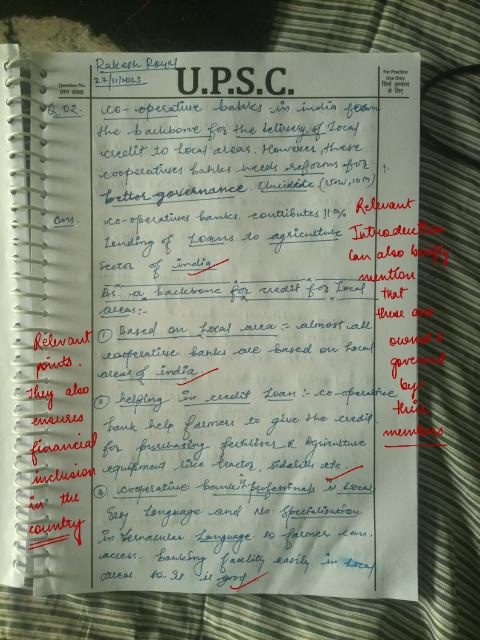 Rakesh Royal
27/11/2023
Question No.
प्रश्न संख्या
U.P.S.C.
For Practice
Use Only
सिर्फ अभ्यास
के लिए
Q. 02.
co-operative banks in india form
the backbone for the delivery of Local
credit to Local areas. However, these
cooperatives bankes needs reforms for
better governance. Elucidate (150w, 10M)
Ans.
co-operatives banks. contributes 11%
Lending of Loans to agriculture
sector of india
As a backbone for credit for Local
areas:-
① Based on Local area :- almost all
cooperative banks are based on Local
areas of india.
② helping in credit Loan :- co-operative
bank help farmers to give the credit
for purchasing fertiliser & Agriculture
equipment like tractor, etc.
③ cooperative bank professionals is Local
Easy Language and No Specialisation
in Vernacular Language so farmer can.
access. banking facility easily in Local
areas. so. It is good
Relevant
Introduction
Can also briefly
mention
that
these are
owned &
governed
by
their
members
Relevant
points.
They also
ensures
financial
inclusion
in the
country